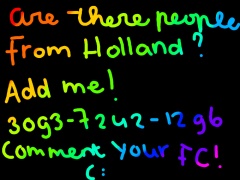 are there people
from Holland?
Add me!
3093-7242-1296
Comment your FC!
C: